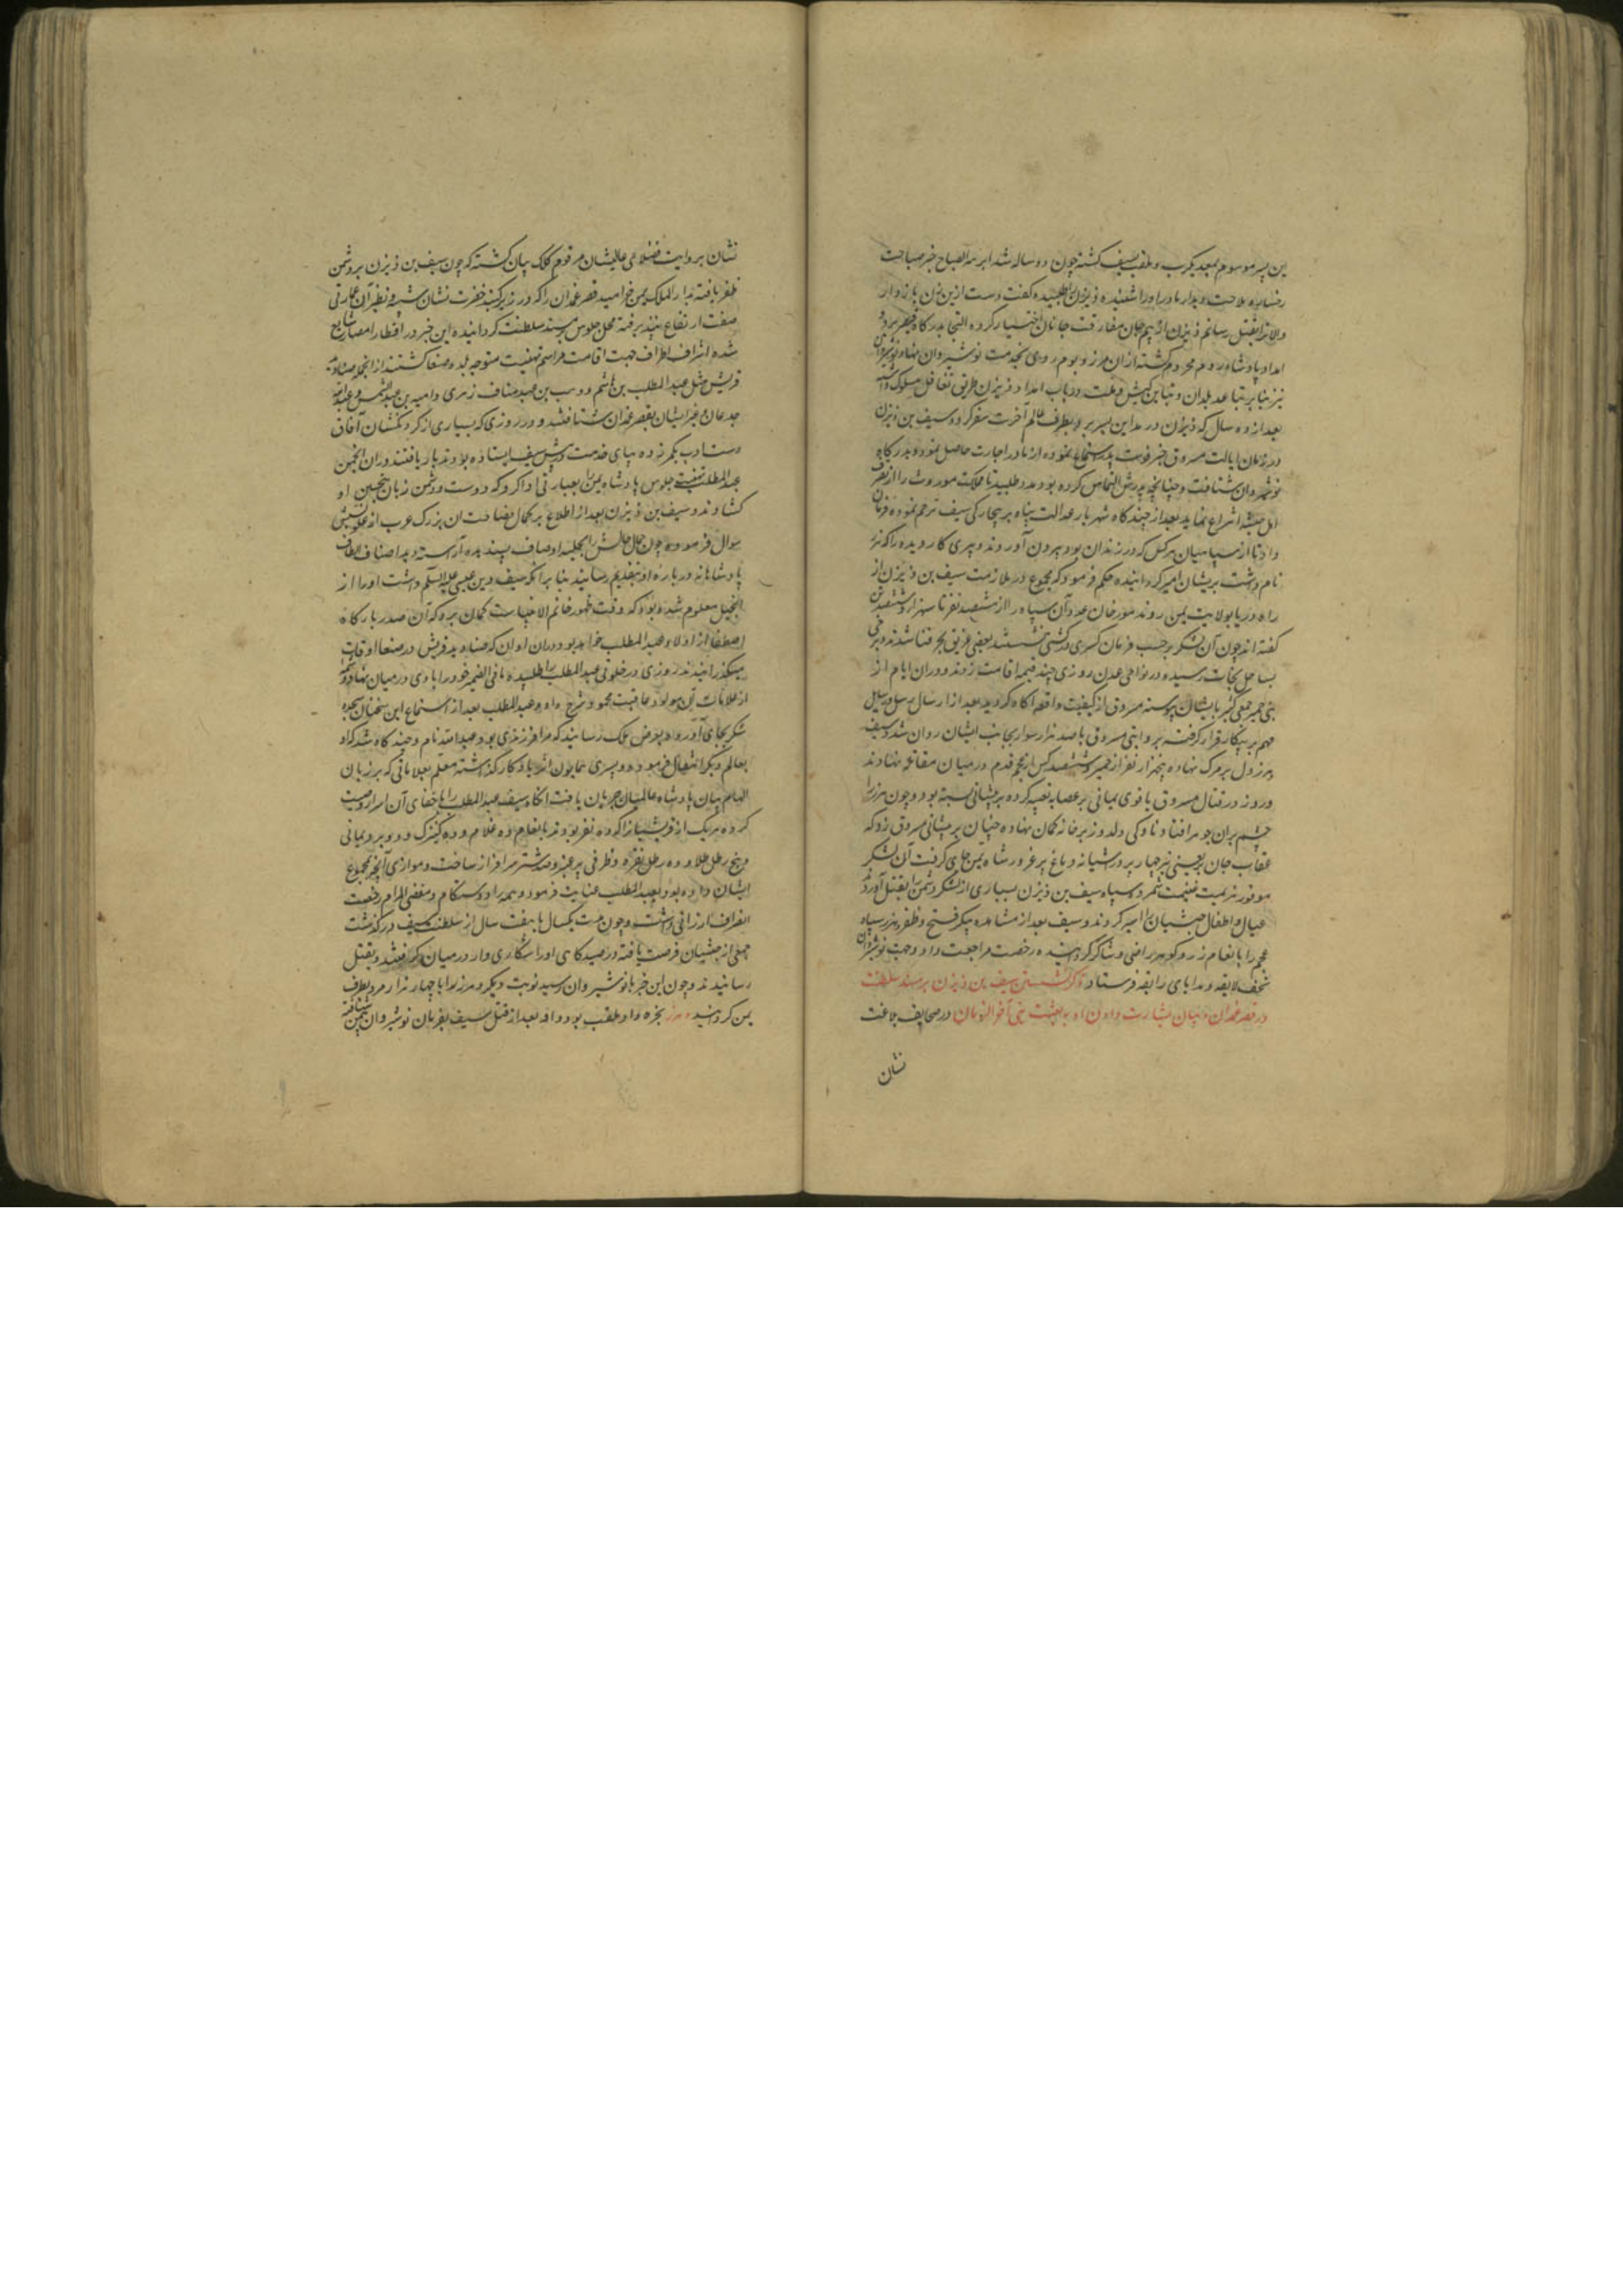 این پسر موسوم بمعدیکرب و ملقب بسیف کشته چون دو ساله شد ابرهة الصباح خبر صباحت
رخساره ملاحت دیدار مادر او را شنیده ذیزن را طلبیده کفت دست ازین زن باز دار
والا ترا بقتل رسانم ذیزن از بیم جان مفارقت جانان اختیار کرده التجا بدرکاه قیصر برد و
امداد پادشاه روم محروم کشته از ان مرز و بوم روی بخدمت نوشیروان نهاد و نوشیروان
نیز بنابر تباعد بلدان و تباین کیش و ملت در باب امداد ذیزن طریق تغافل مسلوک داشته
بعد از ده سال که ذیزن در مداین بسر برد بطرف عالم آخرت سفر کرد و سیف بن ذیزن
در زمان ایالت مسروق خبر فوت پدر استماع نموده از مادر اجازت حاصل نمود و بدرکاه
نوشیروان شتافت و چنانچه پدرش التماس کرده بود مدد طلبید تا مملکت موروث را از تصرف
اهل حبشه انتزاع نماید بعد از چند کاه شهریار عدالت پناه بر بیچارکی سیف ترحم نموده فرمان
داد تا از سپاهیان هر کس که در زندان بود بیرون آوردند و پیری کار دیده را که هرمز
نام داشت بریشان امیر کردانیده حکم فرمود که مجموع در ملازمت سیف بن ذیزن از
راه دریا بولایت یمن روند مورخان عدد آن سپاه را از ششصد نفر تا سه هزار و ششصد تن
کفته اند چون آن لشکر بر حسب فرمان کسری در کشتی نشستند بعضی غریق بحر فنا شدند و برخی
بساحل نجات رسیده در نواحی عدن روزی چند خیمه اقامت زدند و در ان ایام از
بنی حمیر جمعی کثیر بایشان پیوسته مسروق از کیفیت واقعه آکاه کردید بعد از ارسال رسل و رسایل
مهم بر پیکار قرار کرفته بروایتی مسروق با صد هزار سوار بجانب ایشان روان شد و سیف
و هرمز دل بر مرک نهاده پنجهزار نفر از حمیر و ششصد کس از عجم قدم در میدان مقاتله نهادند
و روز در قتال مسروق یاقوی رمانی بر عصابه تعبیه کرده بر پیشانی بسته بود و چون هرمز را
چشم بران جوهر افتاد ناوکی دلدوز بر خانه کمان نهاده چنان بر پیشانی مسروق زد که
عقاب جان بر چینی تیز چهار پر در آشیانه دماغ پر غرور شاه یمن جای کرفت آن لشکر
موفور هزیمت غنیمت شمرد و سپاه سیف بن ذیزن بسیاری از لشکر دشمن را بقتل آوردند
عیال و اطفال حبشیان را اسیر کردند و سیف بعد از مشاهده پیکر فتح و ظفر هرمز و سپاه
عجم را بانعام زر و کوهر راضی و شاکر کردانیده رخصت مراجعت داد و جهت نوشیروان
تحف لایقه و هدایای رایقه فرستاد ذکر نشستن سیف بن ذیزن بر مسند سلطنت
در قصر غمدان و بیان بشارت دادن او به بعثت نبی آخر الزمان در صحایف بلاغت
نشان
نشان بروایت فضلای عالیشان مرقوم کلک بیان کشته که چون سیف بن ذیزن بر دشمن
ظفر یافته بدار الملک یمن خرامید قصر غمدان را که در زیر کنبد خضرت نشان شبیه و نظیر آن عمارتی
صفت ارتفاع نپذیرفته محل جلوس مسند سلطنت کردانیده این خبر در اقطار امصار شایع
شده اشراف اطراف جهت اقامت مراسم تهنیت متوجه بلده صنعا کشتند از انجمله صنادید
قریش مثل عبد المطلب بن هاشم و وهب بن عبد مناف زهری و امیه بن عبد الشمس و عبدالله
جدعان و غیر ایشان بقصر غمدان شتافتند و در روزی که بسیاری از کردنکشان آفاق
دست ادب بکمر زده بپای خدمت در پیش سیف ایستاده بودند بار یافتند در ان انجمن
عبد المطلب تهنیت جلوس پادشاه یمن را بعبارتی ادا کرد که دوست و دشمن زبان بتحسین او
کشادند و سیف بن ذیزن بعد از اطلاع بر کمال فصاحت ان بزرک عرب از علو نسبش
سوال فرموده چون جمال حالش را بحلیه اوصاف پسندیده آراسته دید اصناف الطاف
پادشاهانه در باره او بتقدیم رسانید بنا بر آنکه سیف دین عیسی علیه السلام داشت او را از
انجیل معلوم شده بود که وقت ظهور خاتم الانبیاست کمان برد که آن صدر بارکاه
اصطفا از اولاد عبد المطلب خواهد بود در ان اوان که صنادید قریش در صنعا اوقات
میکذرانیدند روزی در خلوتی عبد المطلب را طلبیده ما فی الضمیر خود را با وی در میان نهاد و شمه
از علامات آن مولود عاقبت محمود شرح داد و عبد المطلب بعد از استماع این سخنان سجده
شکر بجای آورد و بعرض ملک رسانید که مرا فرزندی بود عبد الله نام و چند کاه شد که او
بعالم دیکر انتقال فرموده و پسری همایون اثر یادکار کذاشته معلم بعلاماتی که بر زبان
الهام بیان پادشاه عالمیان جریان یافت انکاه سیف عبد المطلب را باخفای آن اسرار وصیت
کرده هر یک از قریشیان را که ده نفر بودند بانعام ده غلام و ده کنیزک و دو برد یمانی
و پنج رطل طلا و ده رطل نقره و ظرفی پر عنبر و صد شتر سرافراز ساخت و موازی آنچه بمجموع
ایشان داده بود بعبد المطلب عنایت فرمود و همه را دوستکام و مقضی المرام رخصت
انصراف ارزانی داشت و چون مدت یکسال یا هفت سال از سلطنت سیف درکذشت
جمعی از حبشیان فرصت یافته در صیدکاهی او را شکاری وار در میان کرفتند و بقتل
رسانیدند و چون این خبر بانوشیروان رسید نوبت دیکر هرمز را با چهار هزار مرد بطرف
یمن کردانید هرمز بخره داد ملقب بود و او بعد از قتل سیف بفرمان نوشیروان بیمن شتافته